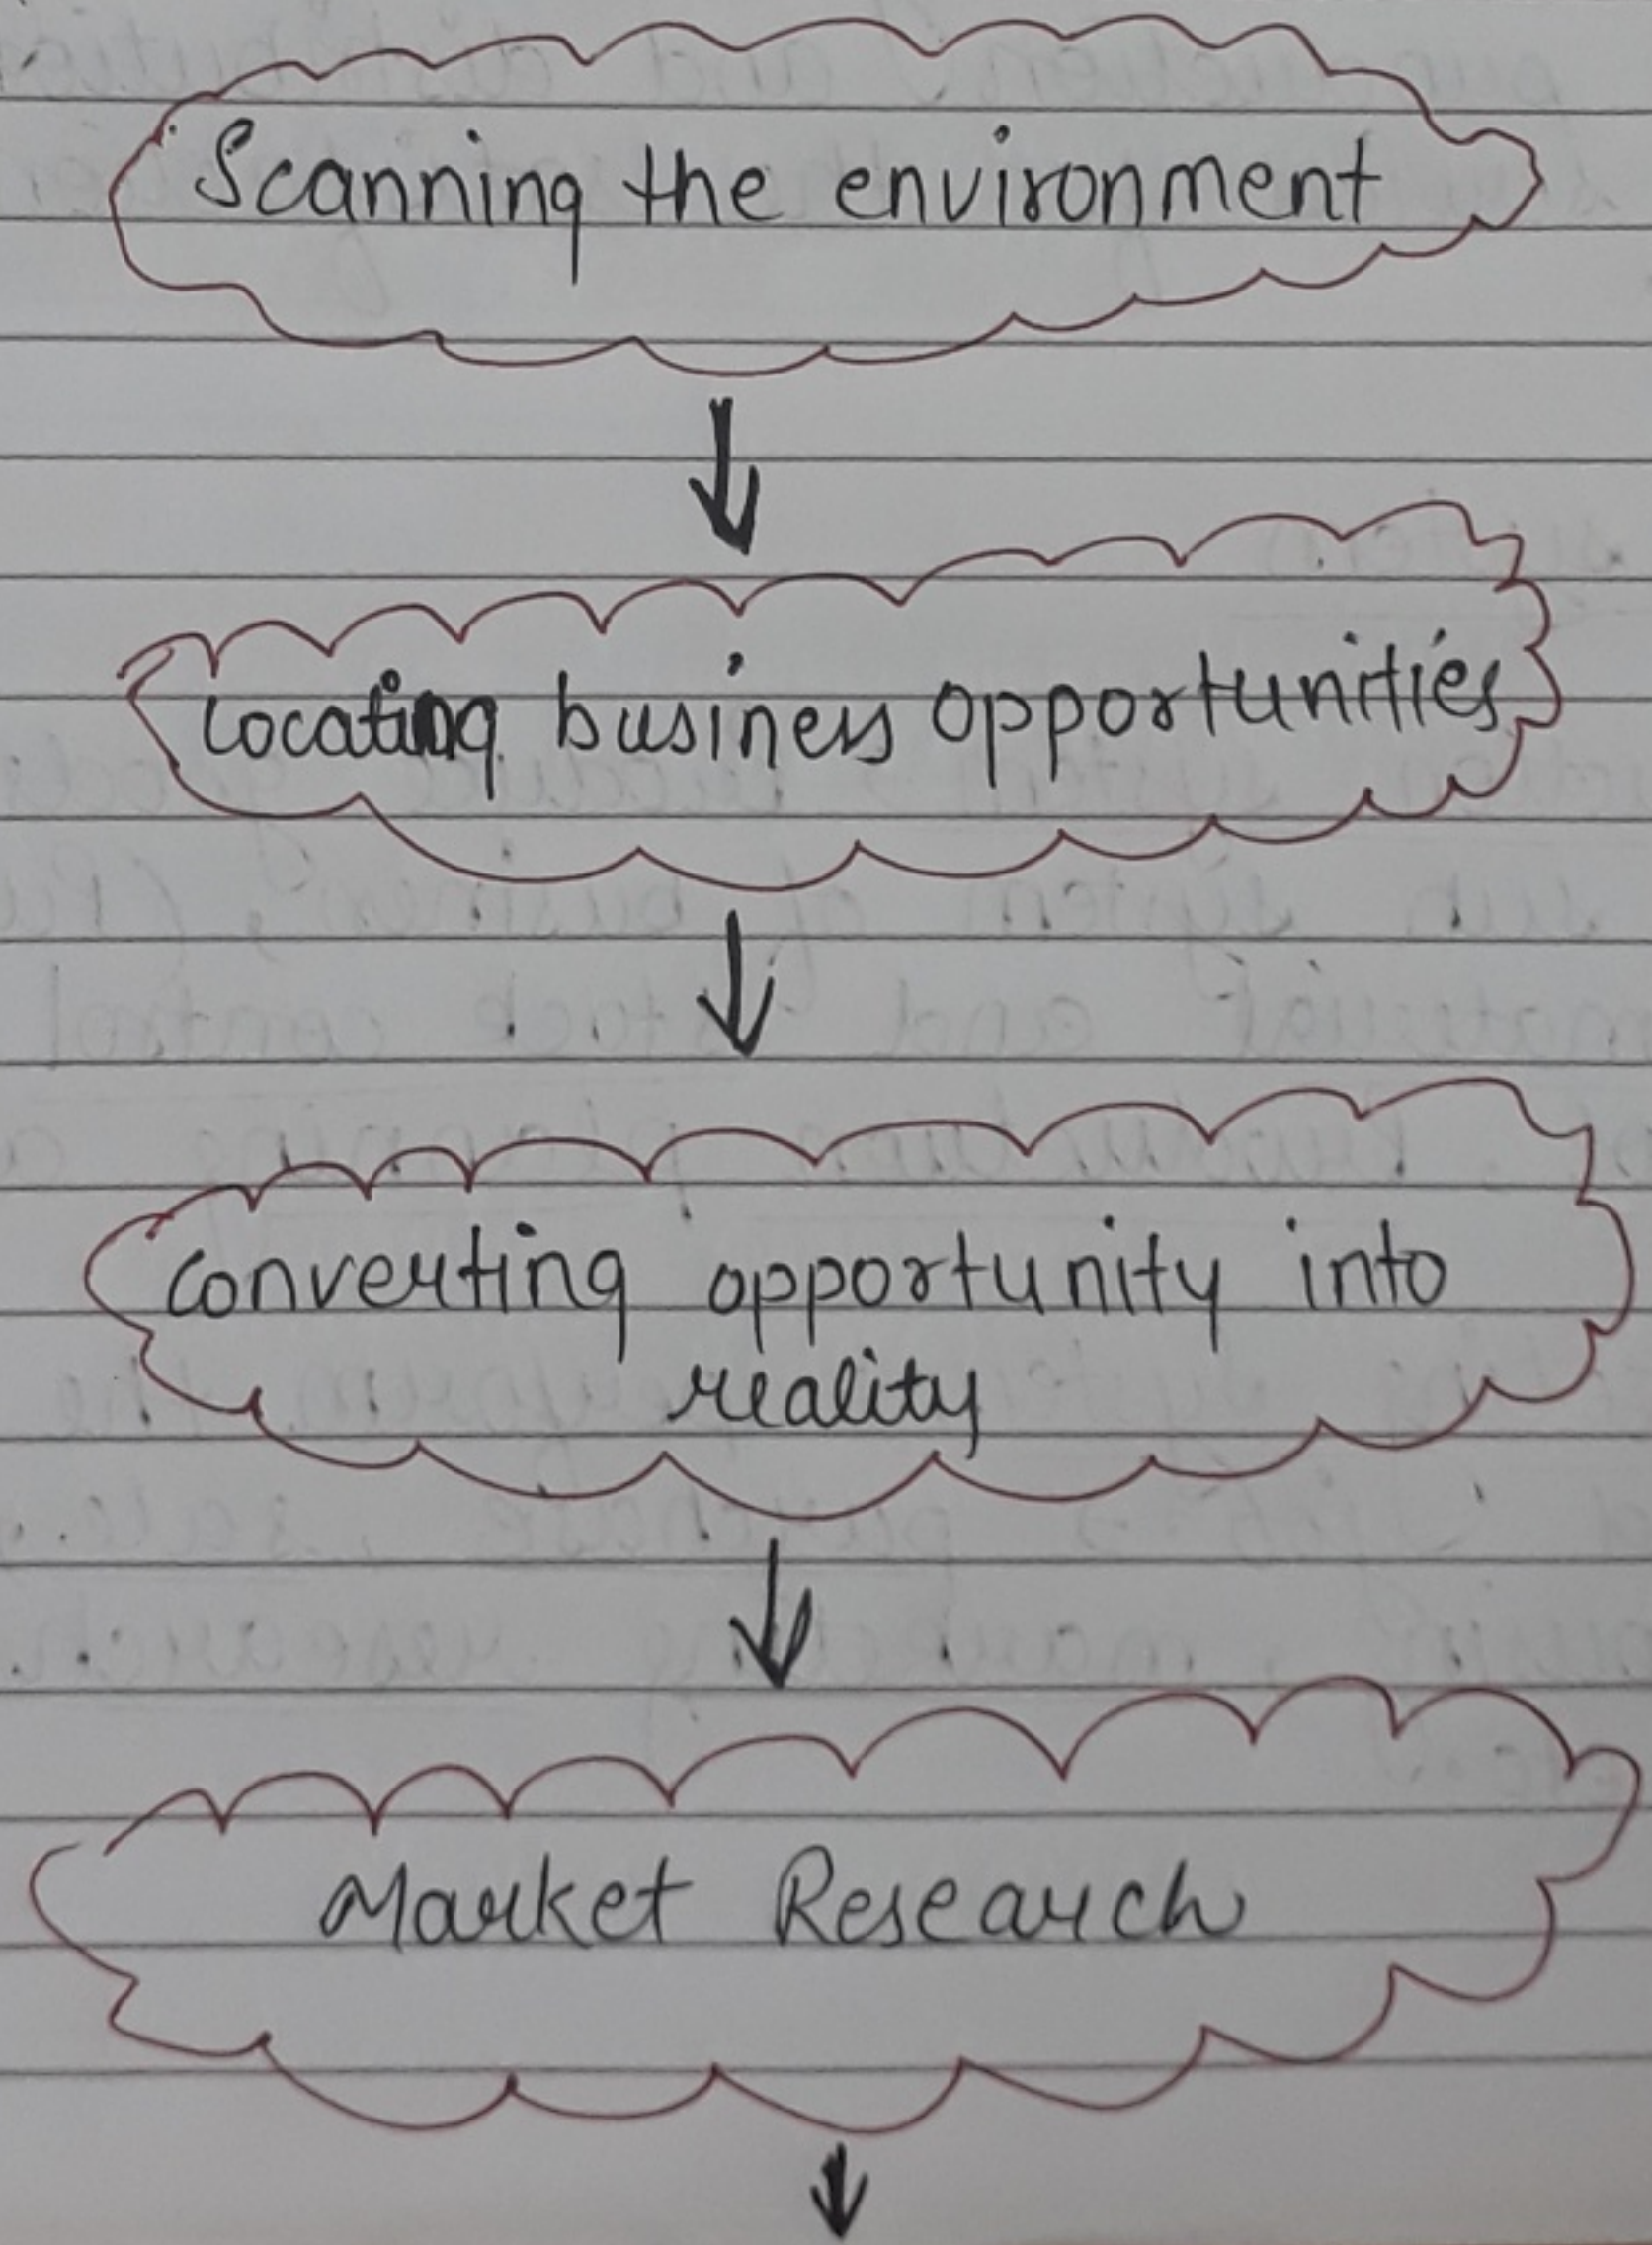 Scanning the environment
Locating business opportunities
Converting opportunity into
reality
Market Research